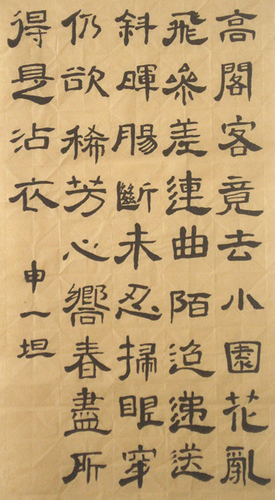 高閣客竟去小園花亂
飛參差連曲陌迢遞送
斜暉腸斷未忍掃眼穿
仍欲稀芳心嚮春盡所
得是沾衣
申一坦